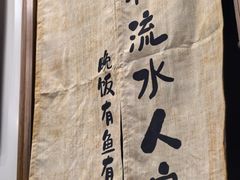 流水人
晚饭有鱼有